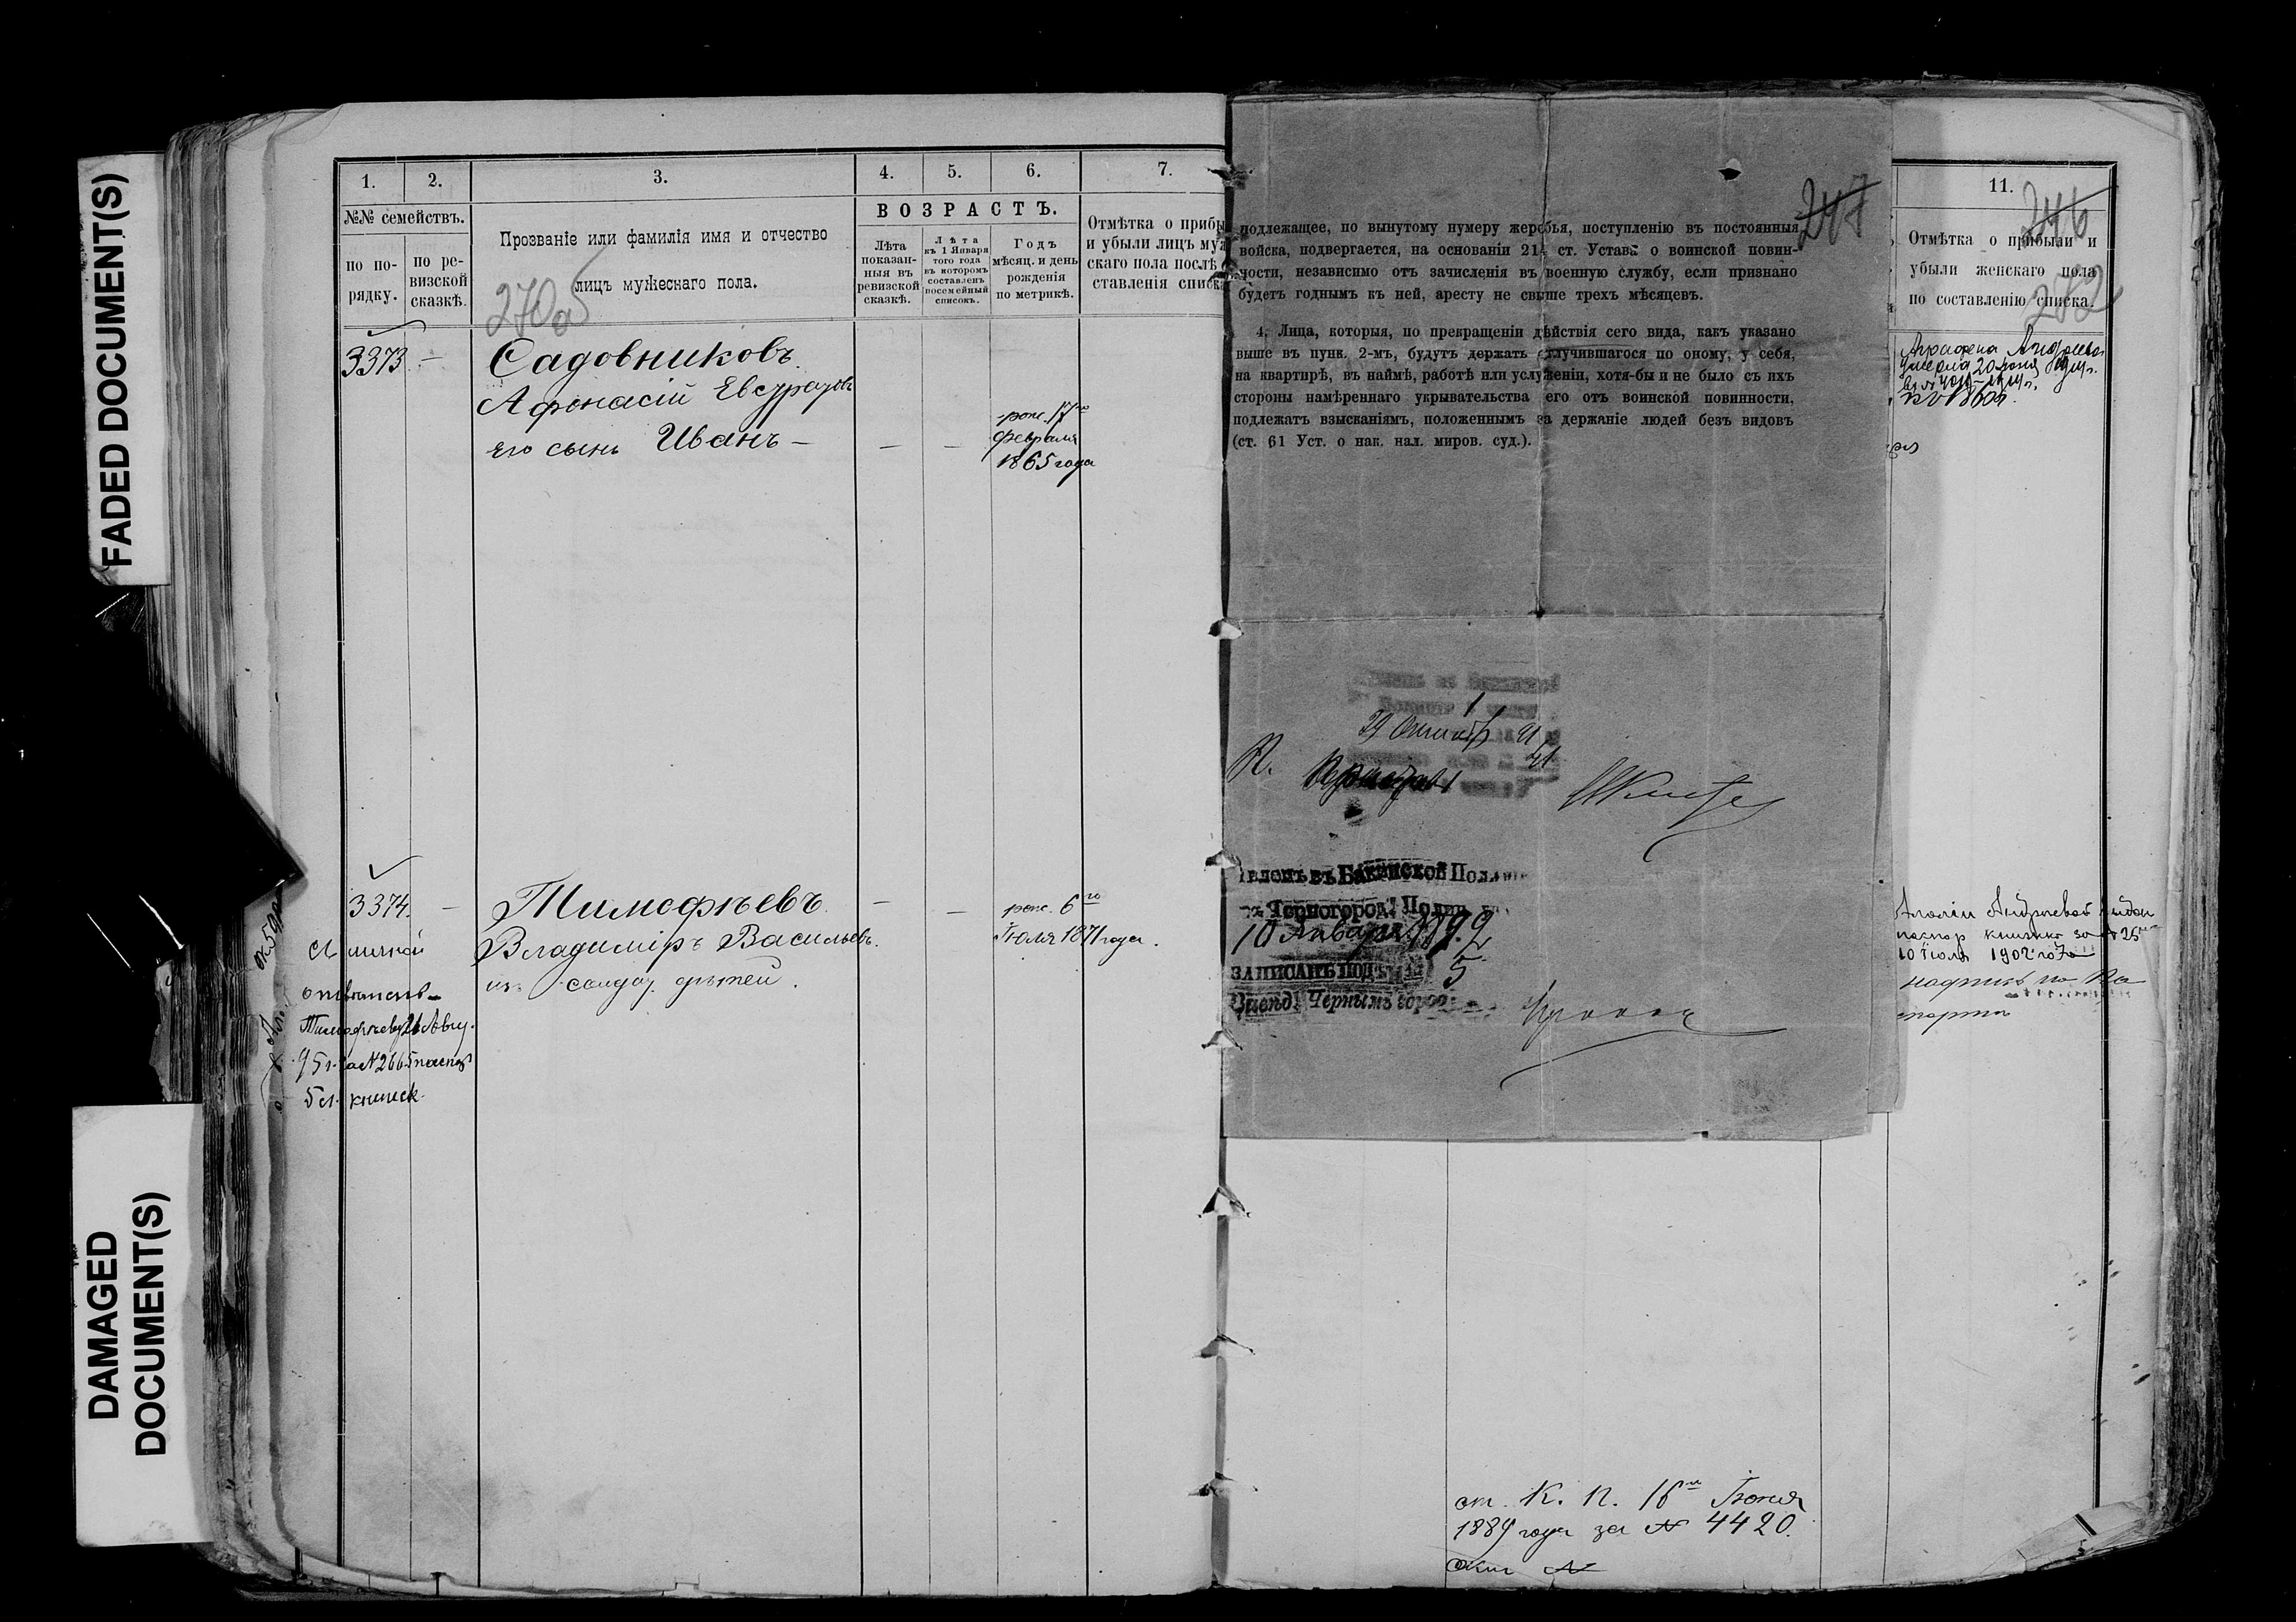 FADED DOCUMENT(S)
DAMAGED
DOCUMENT(S)
1.
2.
3.
4.
5.
6.
7.
№№ семействъ.
по по-
рядку.
по ре-
визской
сказкѣ.
Прозваніе или фамилія имя и отчество
лицъ мужескаго пола.
ВОЗРАСТЪ.
Лѣта
показан-
ныя въ
ревизской
сказкѣ.
Лѣта
къ 1 Января
того года
въ которомъ
составленъ
посемейный
списокъ.
Годъ
мѣсяц. и день
рожденія
по метрикѣ.
Отмѣтка о прибы
и убыли лицъ муж
скаго пола послѣ
ставленія списка
270 об
3373 —
Садовниковъ
Афонасій Евграфовъ
его сынъ Иванъ —
— —
рож. 17го
февраля
1865 года
3374. —
Тимофѣевъ
Владиміръ Васильевъ.
из солдат. дѣтей.
— —
рож. 6го
Іюля 1871 года.
Тимофѣеву 21 Авгу.
95 г. за № 2665 паспор
5 л. книжк.
247
подлежащее, по вынутому нумеру жеребья, поступленію въ постоянныя
войска, подвергается, на основаніи 214 ст. Устава о воинской повин-
ности, независимо отъ зачисленія въ военную службу, если признано
будетъ годнымъ къ ней, аресту не свыше трехъ мѣсяцевъ.
4. Лица, которыя, по прекращеніи дѣйствія сего вида, какъ указано
выше въ пунк. 2-мъ, будутъ держать отлучившагося по оному, у себя,
на квартирѣ, въ наймѣ, работѣ или услуженіи, хотя-бы и не было съ ихъ
стороны намѣреннаго укрывательства его отъ воинской повинности,
подлежатъ взысканіямъ, положеннымъ за держаніе людей безъ видовъ
(ст. 61 Уст. о нак. нал. миров. суд.).
въ Бакинской Поли
Черногород. Полиц
10 Января 1892
ЗАПИСАНЪ ПОДЪ
5
Чернымъ город
11.
246
Отмѣтка о прибыли и
убыли женскаго пола
по составленію списка.
272
Андреева
умерла 20
Андреевой выдан
паспор книжка за № 25
10 Іюля 1902 года
надпись на па
спортѣ
ст. К. П. 16го Іюня
1889 года за № 4420.
№